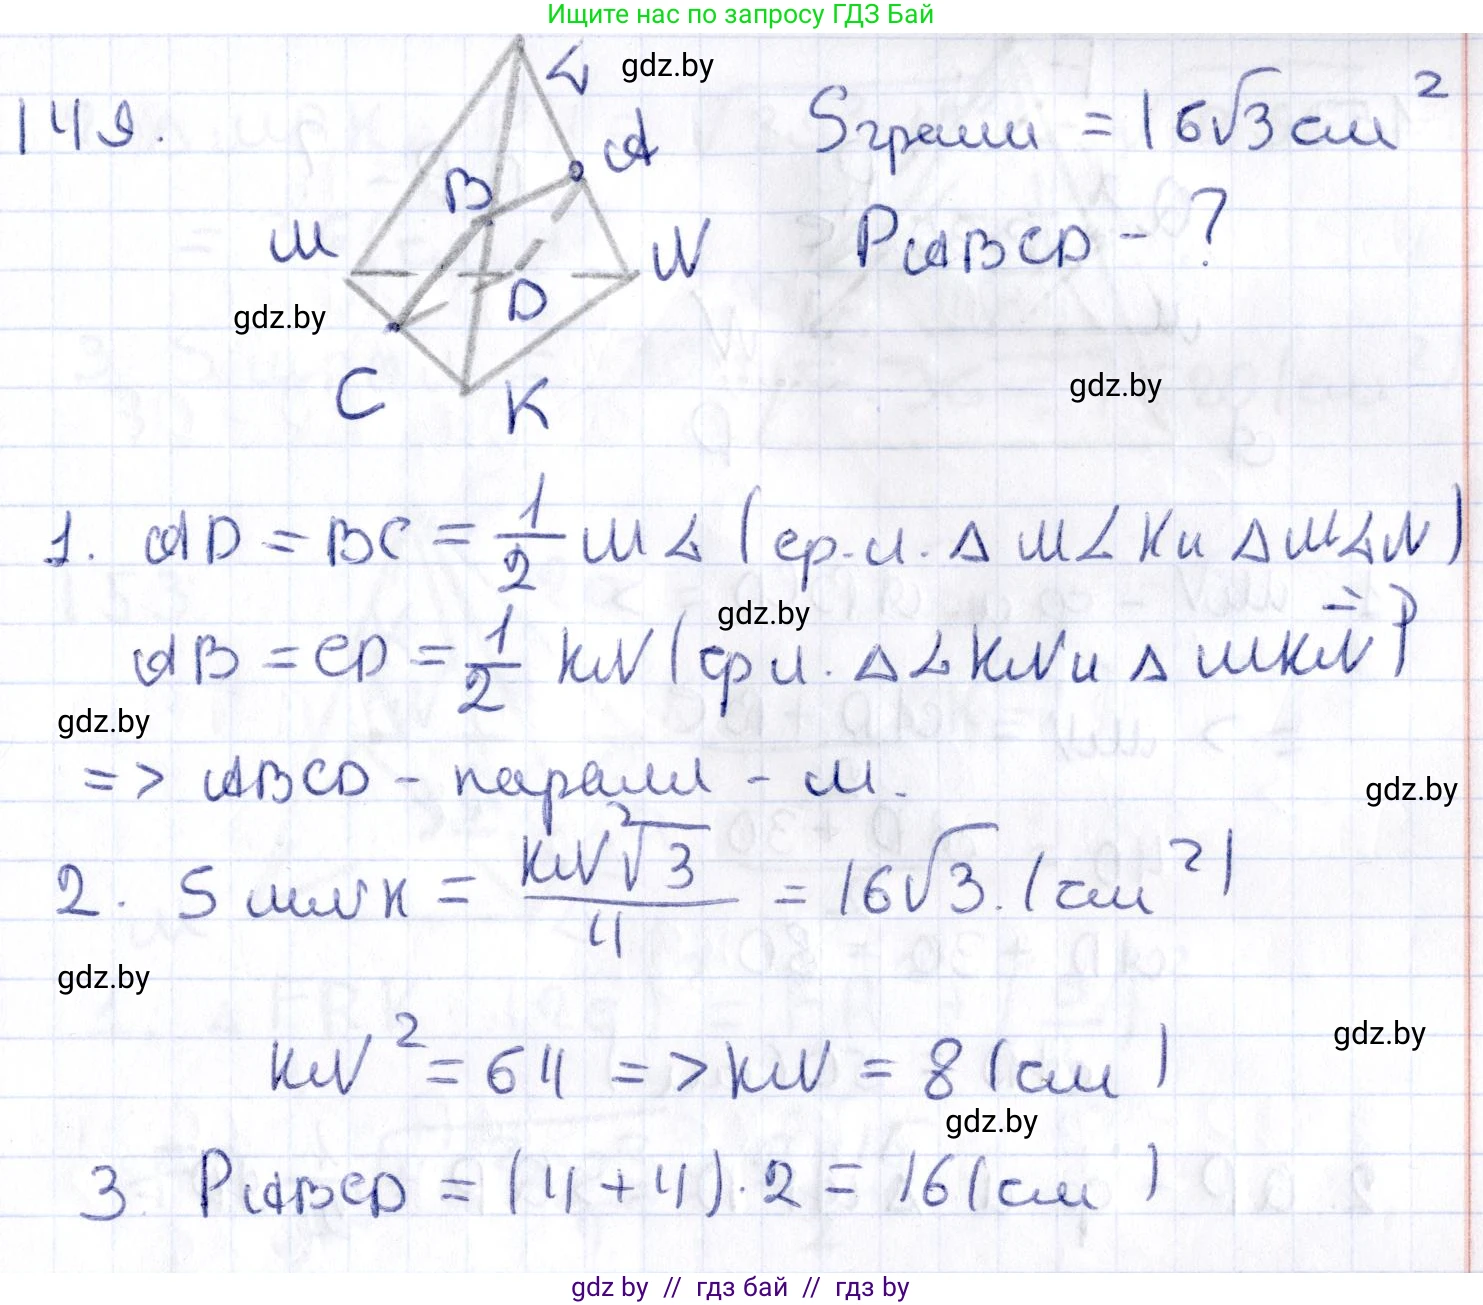 Ищите нас по запросу ГДЗ Бай
149.
L
gdz.by
A
B
M
N
D
gdz.by
C
K
Sграни = 16√3 см²
PABCD - ?
gdz.by
1. AD = BC = 1/2 ML (ср.л. Δ MLK и Δ MLN)
gdz.by
AB = CD = 1/2 KN (ср л. Δ LKN и Δ MKN) =>
gdz.by
=> ABCD - паралл - м.
gdz.by
2. S MNK = KN²√3/4 = 16√3. (см²)
gdz.by
gdz.by
KN² = 64 => KN = 8 (см)
gdz.by
3. PABCD = (4+4)·2 = 16 (см)
gdz by // гдз бай // гдз by